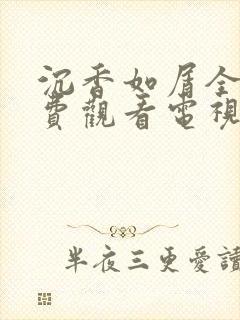 沉香如屑全
費觀看電視
半夜三更愛讀